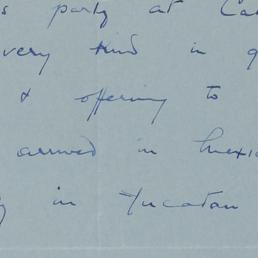 s party at Ca
very kind in g
& offering to
arrived in Mexic
y in Yucatan